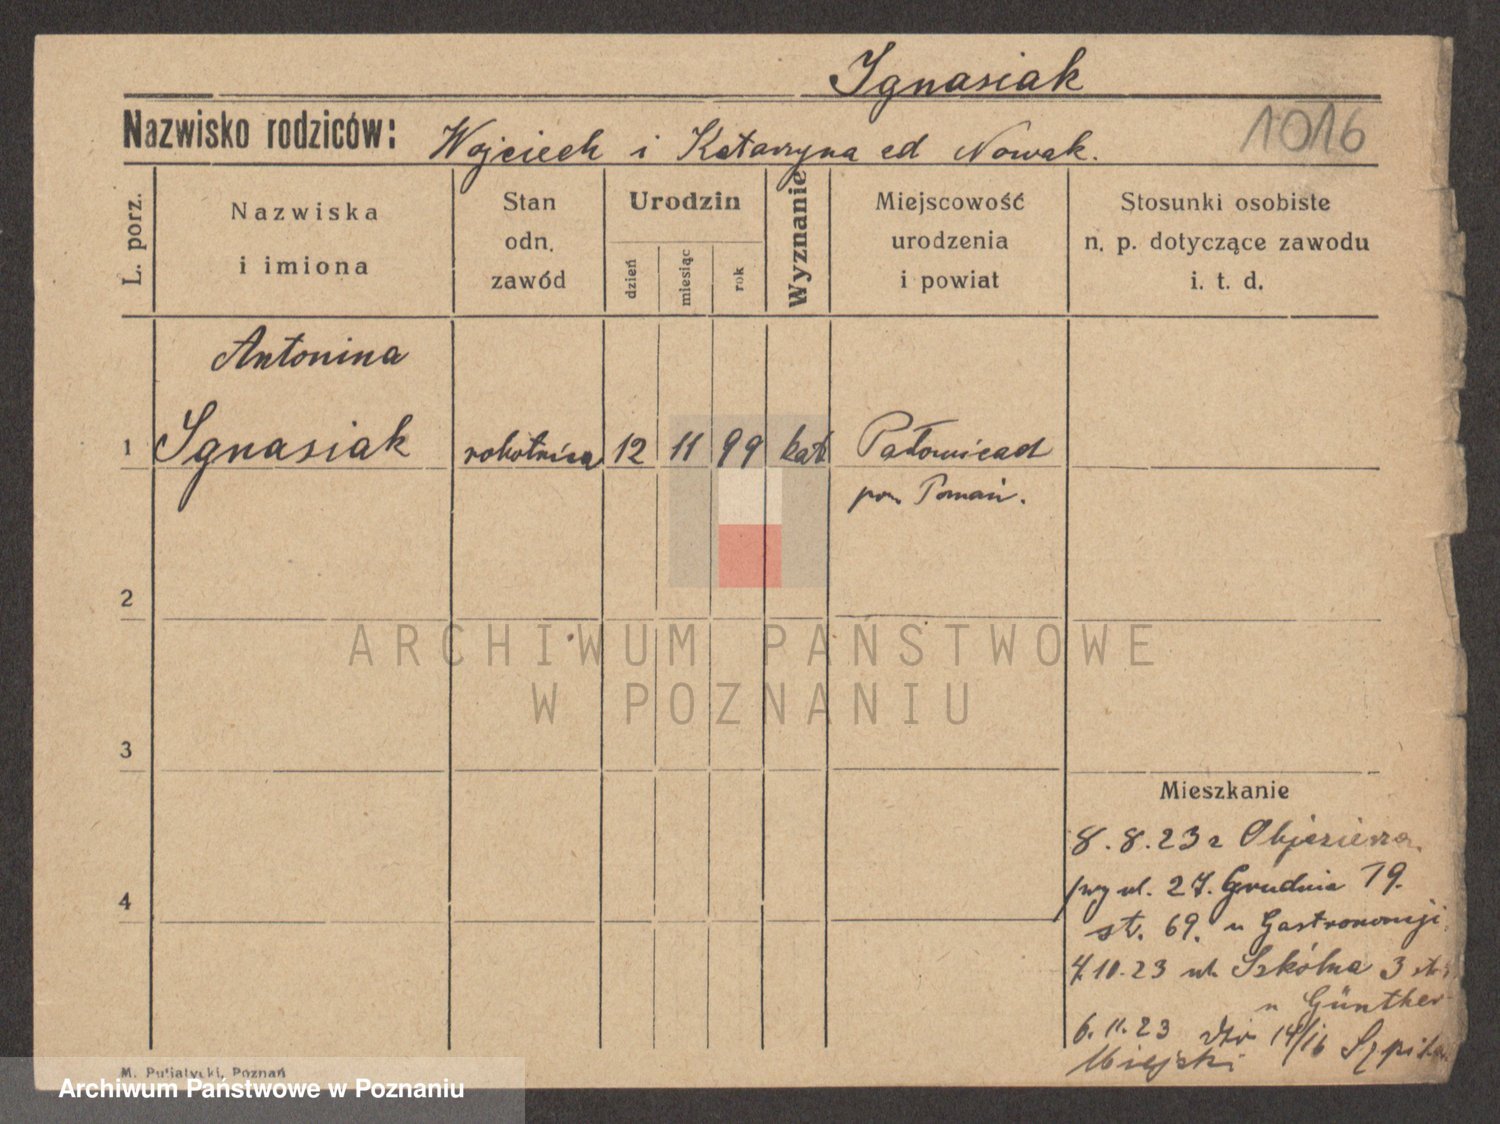 Ignasiak
1016
Nazwisko rodziców: Wojciech i Katarzyna cd Nowak.
L. porz.
Nazwiska
i imiona
Stan
odn.
zawód
Urodzin
dzień
miesiąc
rok
Wyznanie
Miejscowość
urodzenia
i powiat
Stosunki osobiste
n. p. dotyczące zawodu
i. t. d.
Antonina
1 Ignasiak robotnica 12 11 99 kat
pow Poznań.
2
3
4
Mieszkanie
8.8.23 z
ul. 27. Grudnia 19.
st. 69. u Gastronomji
7.10.23 ul. Szkólna 3
u Günther
6.11.23 14/16
Miejski
M. Putiatycki, Poznań
ARCHIWUM PAŃSTWOWE
W POZNANIU
Archiwum Państwowe w Poznaniu